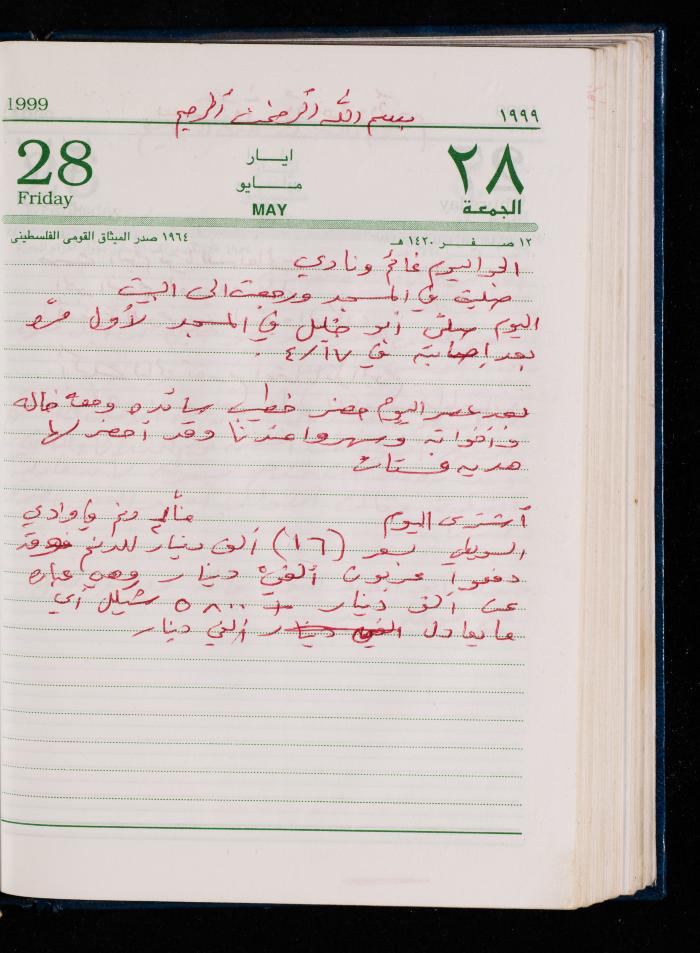 1999 بسم الله الرحمن الرحيم ١٩٩٩
28 ايار ٢٨
Friday مايو الجمعة
MAY
١٩٦٤ صدر الميثاق القومي الفلسطيني ١٢ صفر ١٤٢٠ هـ
الجو اليوم غائم ونادي
صليت في المسجد ورجعت الى البيت
اليوم صلّى أبو خليل في المسجد لأول مرّه
بعد إصابته في ٤/١٧ .
بعد عصر اليوم حضر خطيب سائده ومعه خاله
وأخواته وسهروا عندنا وقد أحضر لها
هديه فستان
أشترى اليوم دونم في وادي
السويطي بسعر (١٦) ألف دينار للدنم وقد
دفعوا عربون ألفيّ دينار وهي عباره
عن ألف دينار + ٥٨٠٠ شيكل أي
ما يعادل ألفي دينار